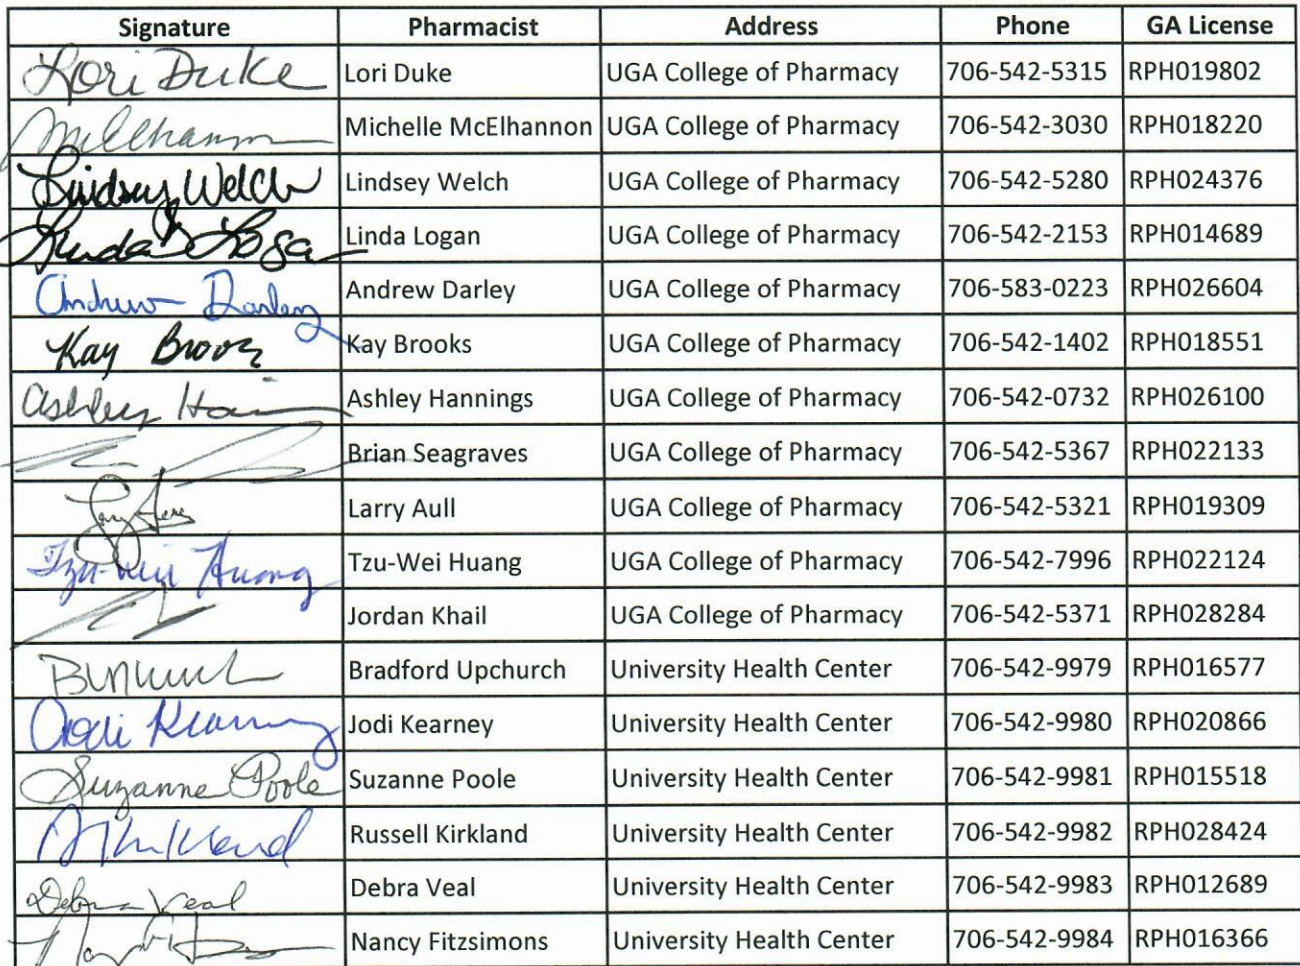 Signature Pharmacist Address Phone GA License
Lori Duke Lori Duke UGA College of Pharmacy 706-542-5315 RPH019802
Michelle McElhannon UGA College of Pharmacy 706-542-3030 RPH018220
Lindsey Welch Lindsey Welch UGA College of Pharmacy 706-542-5280 RPH024376
Linda Logan Linda Logan UGA College of Pharmacy 706-542-2153 RPH014689
Andrew Darley Andrew Darley UGA College of Pharmacy 706-583-0223 RPH026604
Kay Brooks Kay Brooks UGA College of Pharmacy 706-542-1402 RPH018551
Ashley Ashley Hannings UGA College of Pharmacy 706-542-0732 RPH026100
Brian Seagraves UGA College of Pharmacy 706-542-5367 RPH022133
Larry Aull UGA College of Pharmacy 706-542-5321 RPH019309
Tzu-Wei Huang Tzu-Wei Huang UGA College of Pharmacy 706-542-7996 RPH022124
Jordan Khail UGA College of Pharmacy 706-542-5371 RPH028284
Bradford Upchurch University Health Center 706-542-9979 RPH016577
Jodi Kearney Jodi Kearney University Health Center 706-542-9980 RPH020866
Suzanne Poole Suzanne Poole University Health Center 706-542-9981 RPH015518
Russell Kirkland University Health Center 706-542-9982 RPH028424
Debra Veal Debra Veal University Health Center 706-542-9983 RPH012689
Nancy Fitzsimons University Health Center 706-542-9984 RPH016366